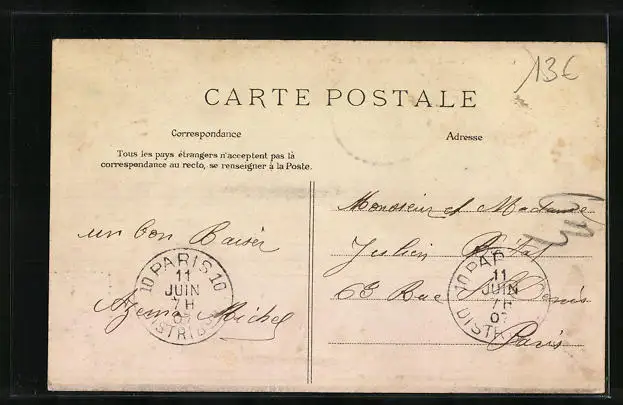 13€
CARTE POSTALE
Correspondance
Adresse
Tous les pays étrangers n'acceptent pas la
correspondance au recto, se renseigner à la Poste.
un bon Baiser
Michel
Monsieur et Madame
63 Rue St Denis
Paris
10 PARIS 10
11
JUIN
7H
07
DISTRIB
10 PAR
11
JUIN
7H
DISTR